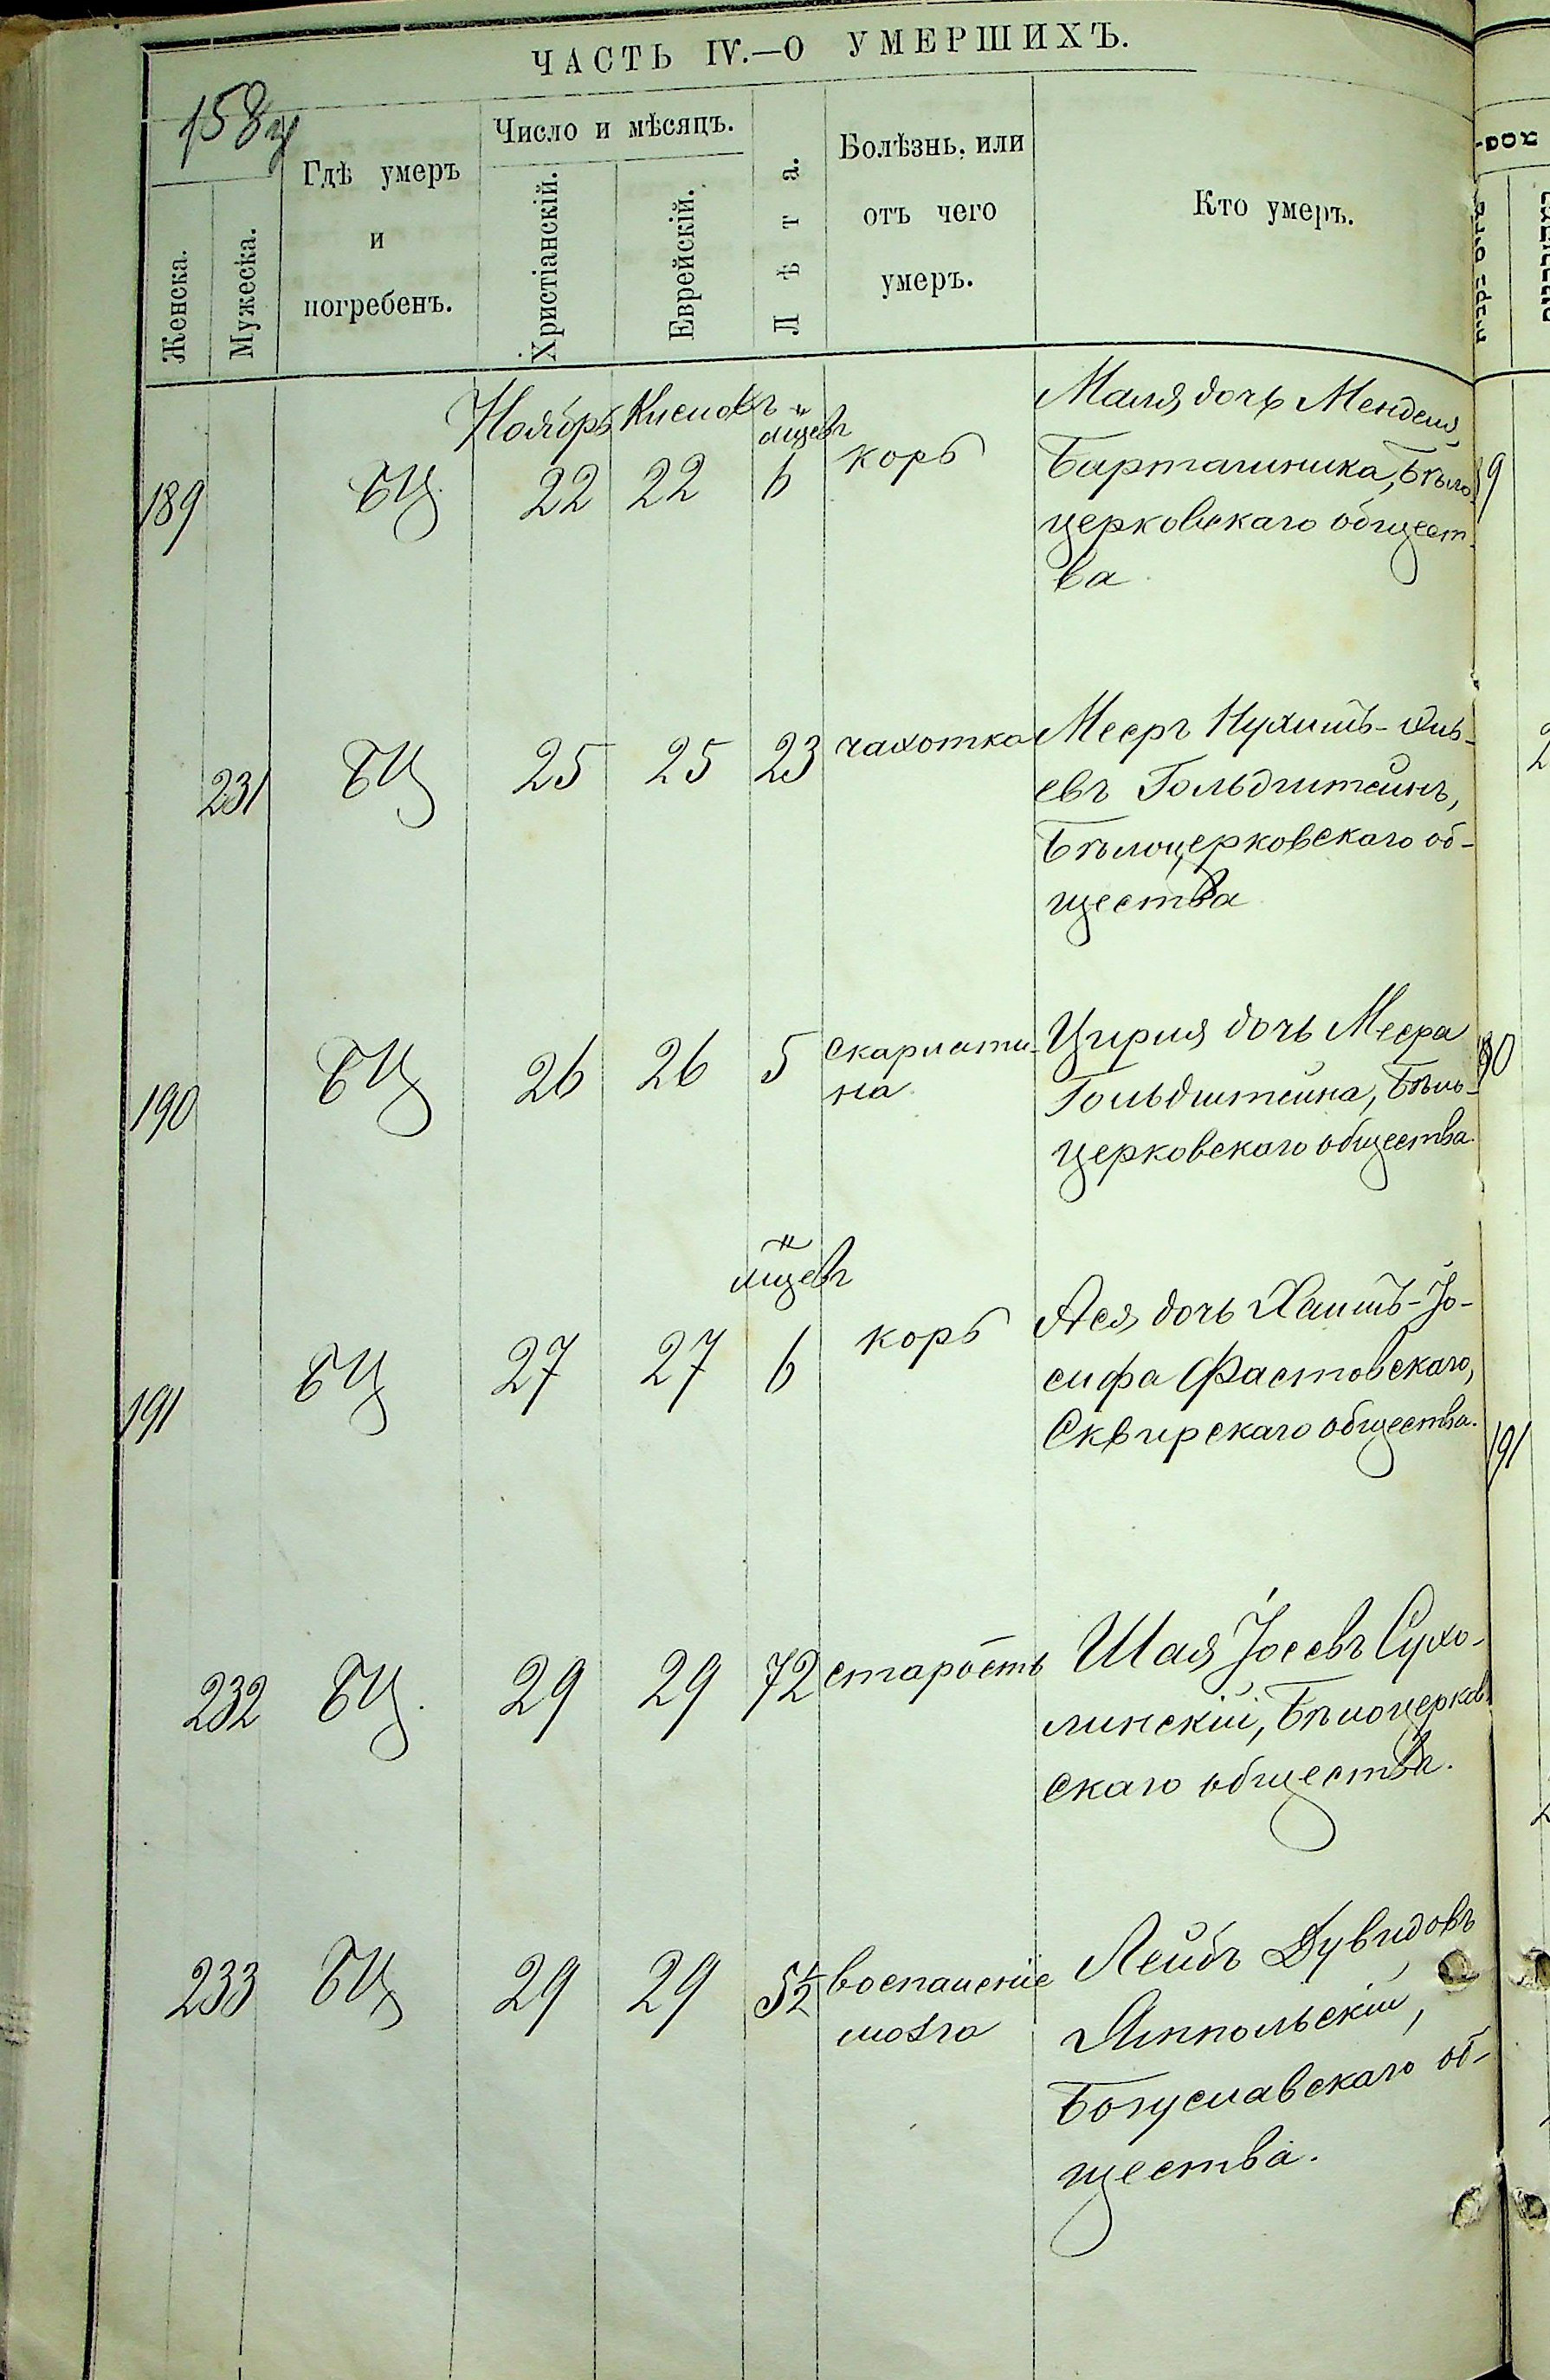 ЧАСТЬ IV.—О УМЕРШИХЪ.
158
Женска.
Мужеска.
Гдѣ умеръ
и
погребенъ.
Число и мѣсяцъ.
Христіанскій.
Еврейскій.
Лѣта.
Болѣзнь, или
отъ чего
умеръ.
Кто умеръ.
Ноябрь Кислевъ
мцевъ
189 БЦ. 22 22 6 корь
Маля дочь Менделя
Барталиника, Бѣло-
церковскаго общест-
ва
231 БЦ 25 25 23 чахотка
Мееръ Нухимъ-
евъ Гольдштейнъ,
Бѣлоцерковскаго об-
щества
190 БЦ 26 26 5 скарлати-
на
Цирля дочь Меера
Гольдштейна, Бѣло-
церковскаго общества.
мцевъ
191 БЦ 27 27 6 корь
Ася дочь Хаимъ-Іо-
сифа Фастовскаго,
Сквирскаго общества.
232 БЦ. 29 29 72 старость
Шая Іосевъ Сухо-
линскій, Бѣлоцерков
скаго общества.
233 БЦ 29 29 5½ воспаленіе
мозга
Лейбъ Дувидовъ
Ямпольскій,
Богуславскаго об-
щества.
191